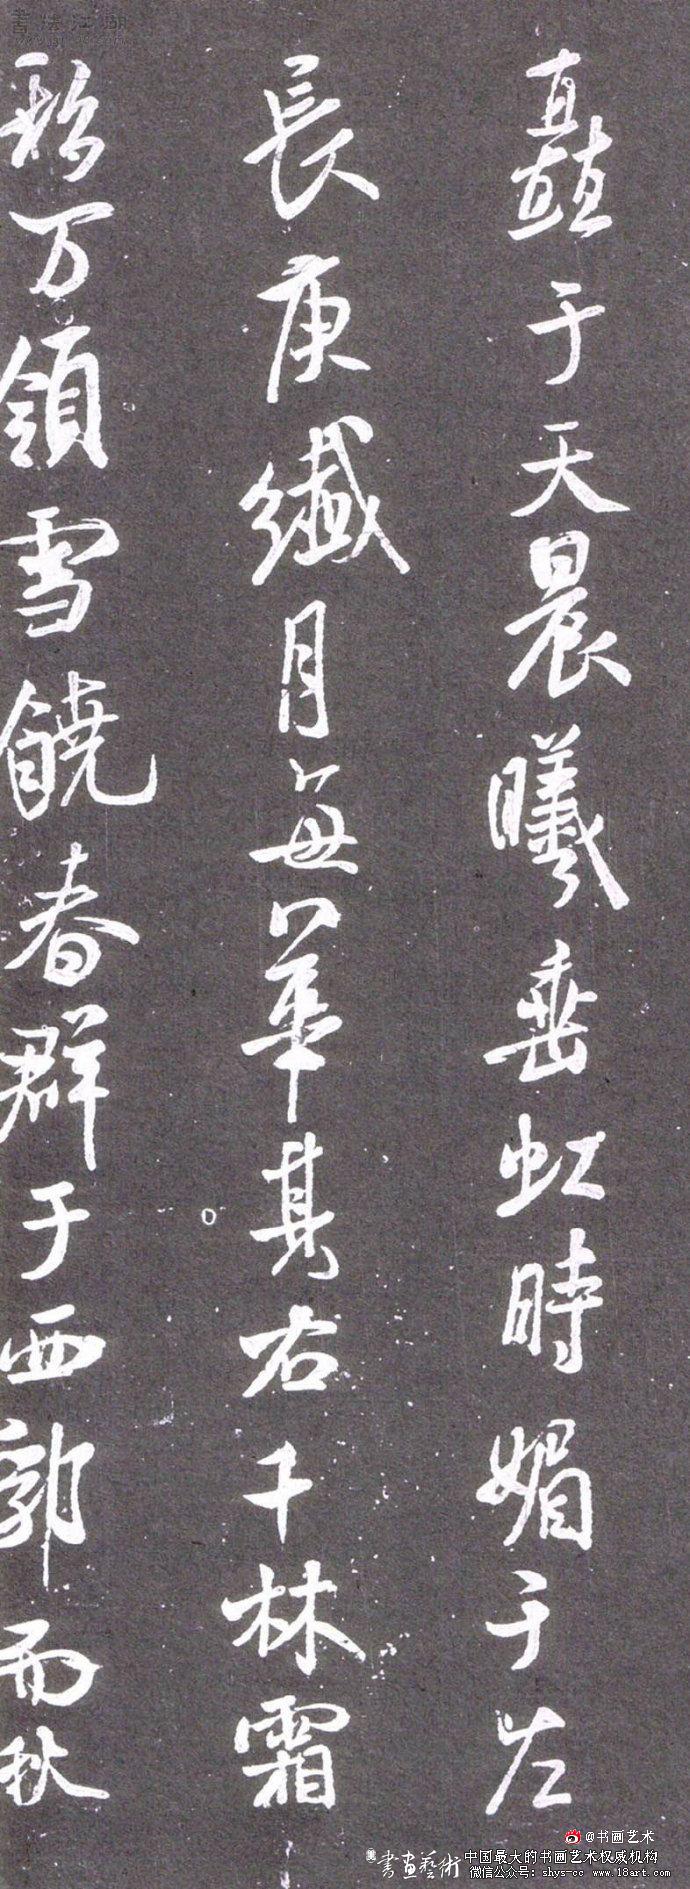 矗于天晨曦垂虹時媚于左
長庚纖月每華其右千林霜
彩万領雪饒春群于西郭而秋
書法江湖
@书画艺术
書畫藝術 中国最大的书画艺术权威机构
微信公众号: shys-cc www.18art.com